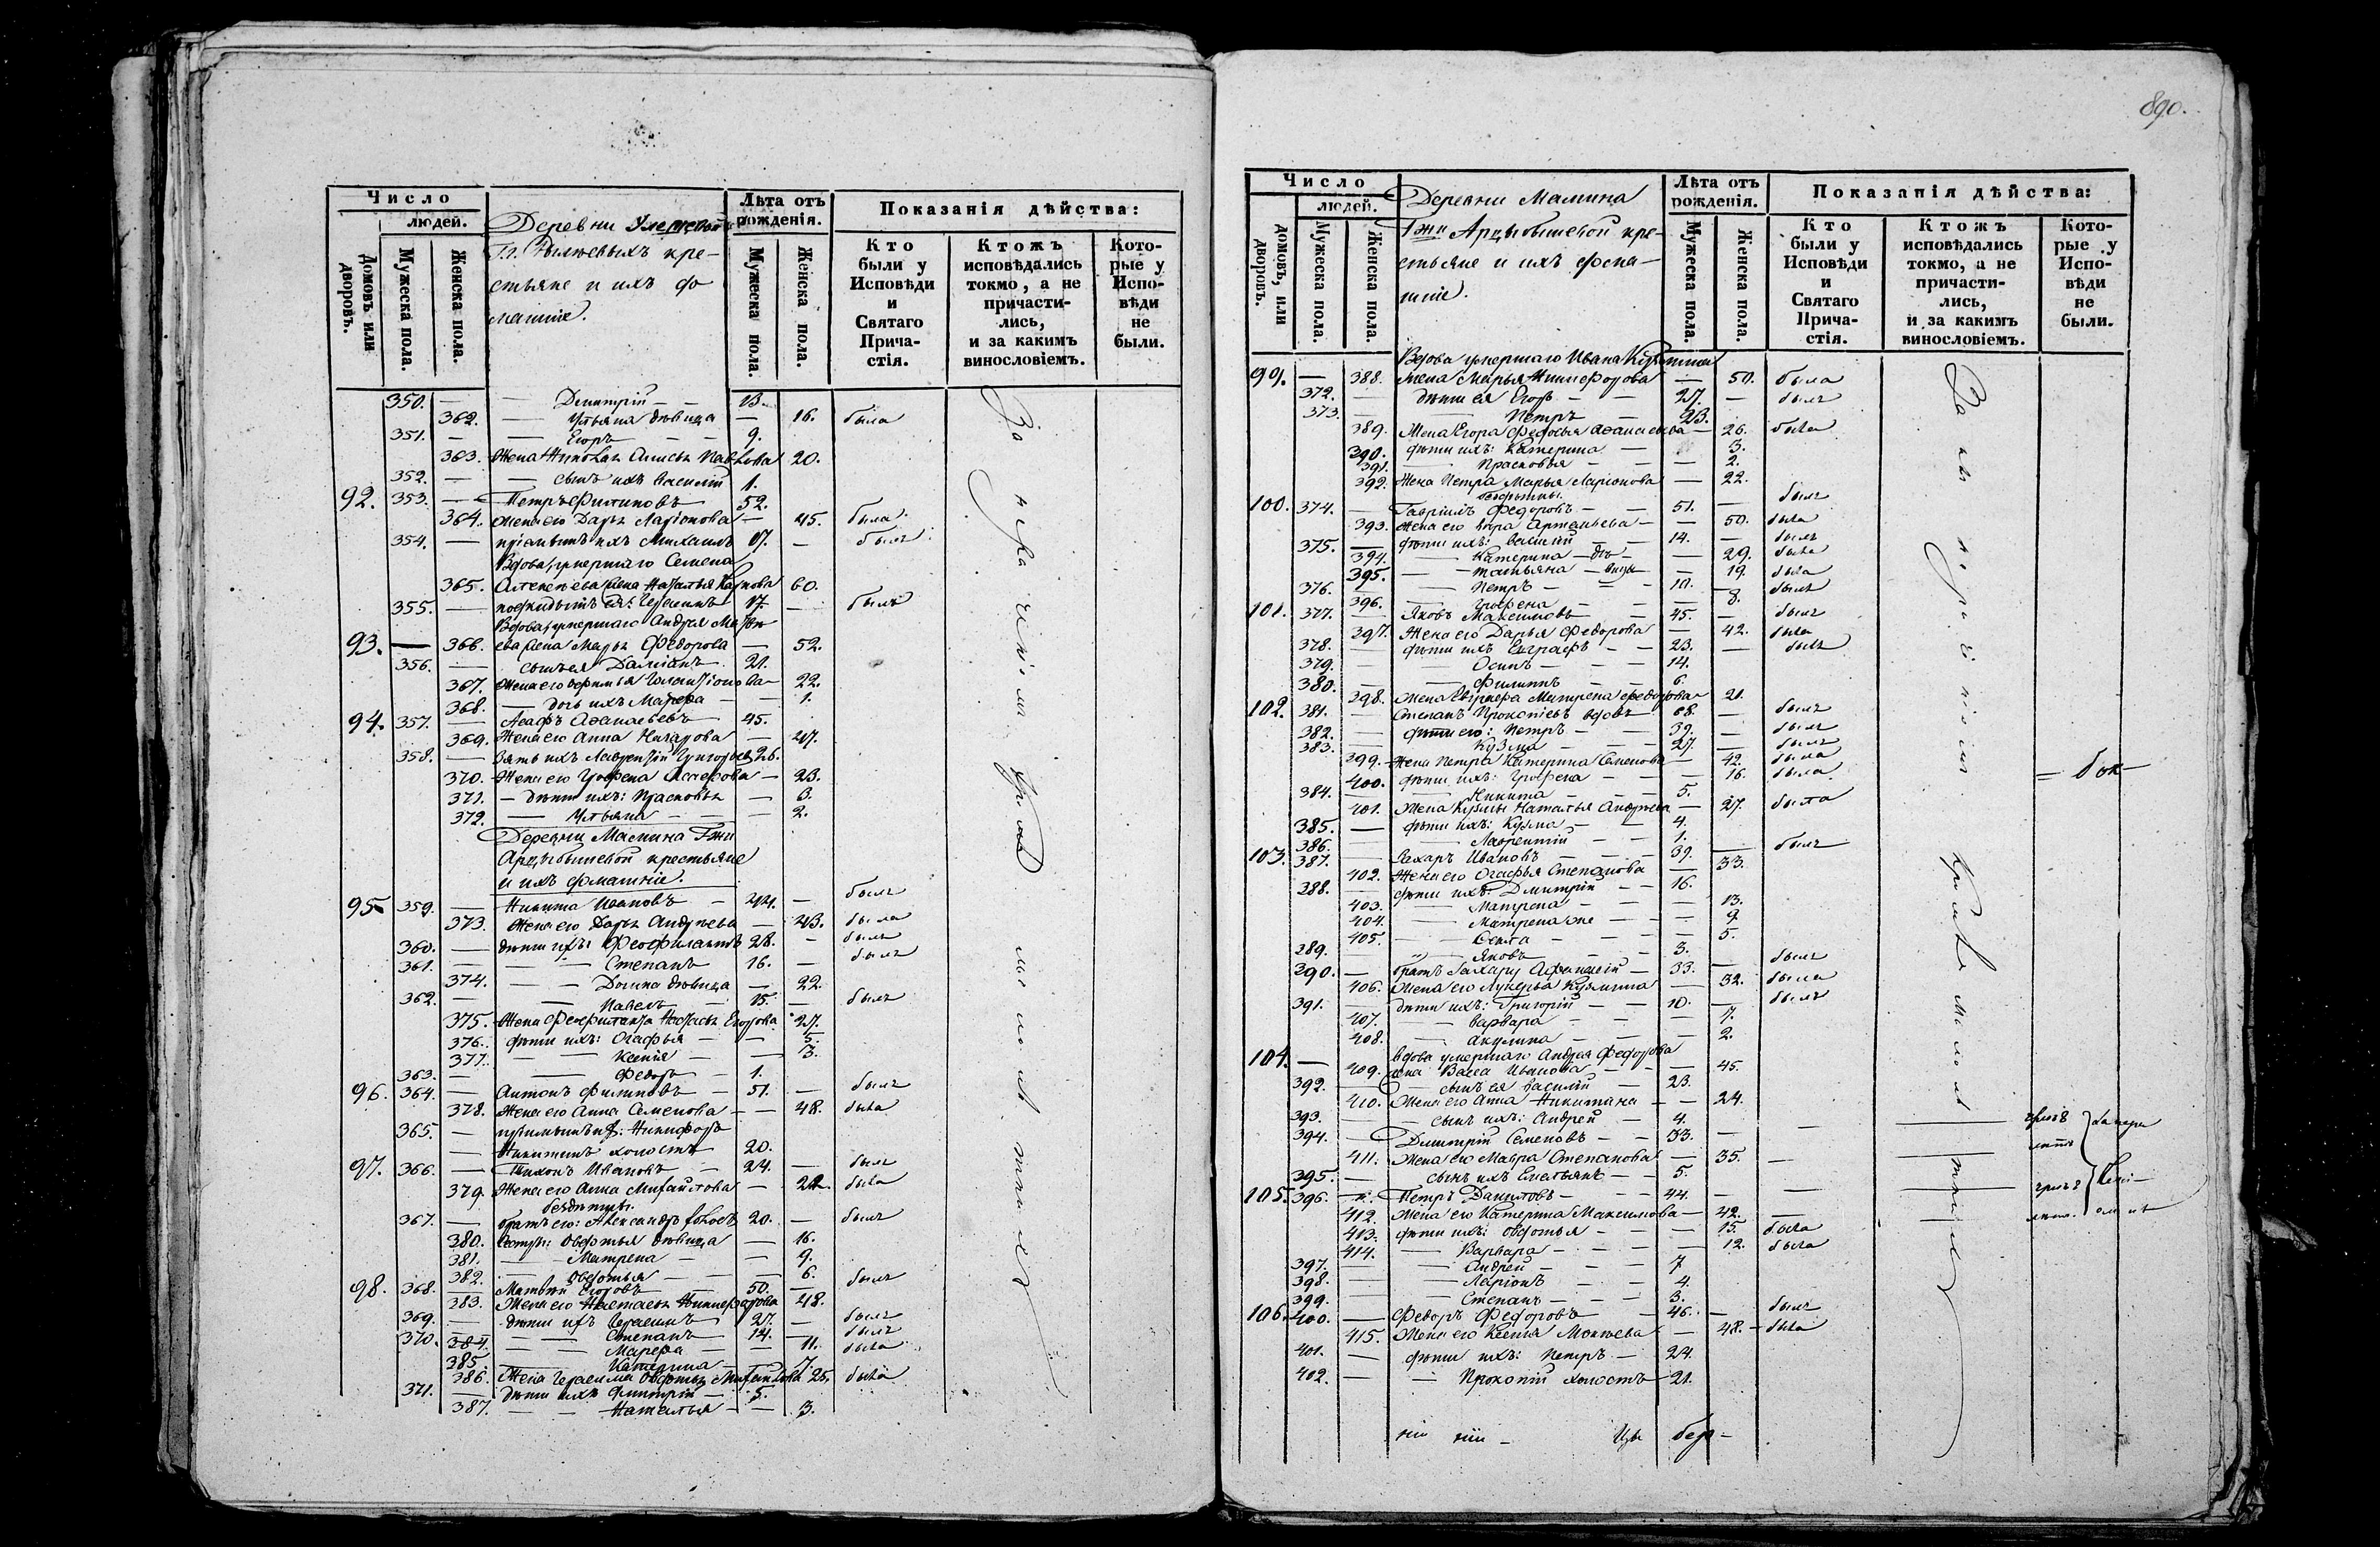 Число
людей.
Домовъ или дворовъ.
Мужеска пола.
Женска пола.
Деревни
кре-
стьяне и ихъ до
машніе.
Лѣта отъ рожденія.
Мужеска пола.
Женска пола.
Показанія дѣйства:
Кто были у Исповѣди и Святаго Прича-стія.
Ктожъ исповѣдались токмо, а не причасти-лись, и за какимъ винословіемъ.
Кото-рые у Испо-вѣди не были.
350. — Дмитрій — 13.
362. — Ульяна дѣвица — 16. была
351. — Егоръ — 9.
363. Жена Николая Алисья Павлова 20.
352. — сынъ ихъ Василій 1.
92. 353. — Петръ Филиповъ 52.
364. Жена его Дарья Ларіонова — 45. была
354. — пріемышъ ихъ Михаилъ 17. — былъ
Вдова, умершаго Семена
365. жена Наталья 60.
355. — подкидышъ ея: Герасимъ 17. — былъ
Вдова, умершаго Андрея Матвѣ
93. — 366. ева жена Марья Федорова — 52.
356. — сынъ ея Даміанъ 21.
367. Жена его Ефимья — 22.
368. — дочь ихъ Марфа — 1.
94. 357. — Асафъ Афанасьевъ 45.
369. Жена его Анна Назарова — 47.
358. — Зять ихъ Лаврентій Григорьев 26.
370. Жена его Груфена Асафова — 23.
371. — дѣти ихъ: Прасковья — 6.
372. — Ульяна — 2.
Деревни Мамина Гжи
Арцыбышевой крестьяне
и ихъ домашніе.
95 359. — Никита Ивановъ — 44. былъ
373. Жена его Дарья Андреева — 43. была
360. — дѣти ихъ: Феофилактъ 28. — былъ
361. — Степанъ 16. — былъ
374. — Домна дѣвица — 22.
362. — Павелъ — 15. — былъ
375. Жена Феофилакта Настасья Егорова 27.
376. дѣти ихъ: Огафья — 5.
377. — Ксенія — 3.
363. — Федоръ — 1.
96. 364. — Антонъ Филиповъ — 51. — былъ
378. Жена его Анна Семенова — 48. была
365. — пріемышъ их: Никифоръ
— Никитинъ холостъ 20.
97. 366. — Тихонъ Ивановъ — 24. — былъ
379. Жена его Анна Михайлова — 22. была
бездѣтны.
367. — братъ его: Александръ холостъ 20. — былъ
380. сестры: Овдотья дѣвица — 16.
381. — Матрена — 9.
382. — Овдотья — 6.
98. 368. — Матвѣй Егоровъ — 50. — былъ
383. Жена его Настасья Никифорова 48.
369. — дѣти ихъ Герасимъ 27. — былъ
370. — Степанъ 14. — былъ
384. — Марфа — 11. была
385. — Катерина — 7.
386. Жена Герасима Овдотья Михайлова 25. была
371. — дѣти ихъ Дмитрій — 5.
387. — Наталья — 3.
890.
Число
людей.
домовъ, или дворовъ.
Мужеска пола.
Женска пола.
Деревни Мамина
Гжи Арцыбышевой кре-
стьяне и ихъ дома-
шніе.
Лѣта отъ рожденія.
Мужеска пола.
Женска пола.
Показанія дѣйства:
Кто были у Исповѣди и Святаго Прича-стія.
Ктожъ исповѣдались токмо, а не причасти-лись, и за какимъ винословіемъ.
Кото-рые у Испо-вѣди не были.
Вдова умершаго Ивана Кузмина
99. — 388. жена Марья Никифорова — 50. была
372. — дѣти ея Егоръ — 27. — былъ
373. — Петръ — 23.
389. Жена Егора Федосья Афанасьева — 26. была
390. дѣти ихъ: Катерина — 3.
391. — Прасковья — 2.
392. Жена Петра Марья Ларіонова — 22.
бездѣтны.
100. 374. — Гавріилъ Федоровъ — 51. — былъ
393. Жена его Вѣра Артемьева — 50. была
375. — дѣти ихъ: Василій — 14. — былъ
394. — Катерина — дѣ- — 29. была
395. — Татьяна — вицы — 19. была
376. — Петръ — 10. — былъ
396. — Груфена — 8.
101. 377. — Яковъ Максимовъ — 45. — былъ
397. Жена его Дарья Федорова — 42. была
378. — дѣти ихъ Евграфъ — 23. — былъ
379. — Осипъ — 14.
380. — Филиппъ — 6.
398. Жена Евграфа Матрена Федорова 21.
102. 381. — Степанъ Прокопіевъ вдовъ 68. — былъ
382. — дѣти его: Петръ — 39. — былъ
383. — Кузма — 27. — былъ
399. Жена Петра Катерина Семенова — 42. была
400. дѣти ихъ: Груфена — 16. была
384. — Никита — 5.
401. Жена Кузмы Наталья Андреева — 27. была
385. — дѣти ихъ: Кузма — 4.
386. — Лаврентій — 1.
103. 387. — Захаръ Ивановъ — 39. — былъ
402. Жена его Огафья Степанова — 33.
388. — дѣти ихъ: Дмитрій — 16.
403. — Матрена — 13.
404. — Матрена же — 9
405. — Секта — 5.
389. — Яковъ — 3.
390. — братъ Захару Афанасій — 33. — былъ
406. Жена его Лукерья Кузмина — 32. была
391. — дѣти ихъ: Григорій — 10. — былъ
407. — Варвара — 7.
408. — Акулина — 2.
104. — вдова умершаго Андрея Федорова
409. жена Васса Иванова — 45.
392. — сынъ ея Василій — 23.
410. Жена его Анна Никитина — 24.
393. — сынъ ихъ: Андрей — 4.
394. — Дмитрій Семеновъ — 33. —
411. Жена его Мавра Степанова — 35. —
395. — сынъ ихъ Емельянъ — 5.
105. 396. — Петръ Даниловъ — 44. —
412. Жена его Катерина Максимова — 42. —
413. дѣти ихъ: Овдотья — 15. была
414. — Варвара — 12. была
397. — Андрей — 7
398. — Ларіонъ — 4.
399. — Степанъ — 3.
106. 400. — Федоръ Федоровъ — 46. — былъ
415. Жена его Ксенія Мокеева — 48. — была
401. — дѣти ихъ: Петръ — 24.
402. — Прокопій холостъ 21.